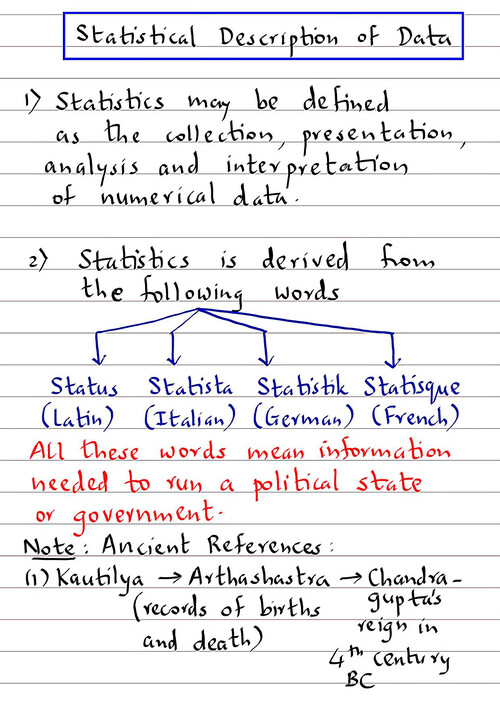 Statistical Description of Data
1) Statistics may be defined
as the collection, presentation,
analysis and interpretation
of numerical data.
2) Statistics is derived from
the following words
Status Statista Statistik Statisque
(Latin) (Italian) (German) (French)
All these words mean information
needed to run a political state
or government.
Note: Ancient References:
(1) Kautilya → Arthashastra → Chandra-
(records of births guptas
and death) reign in
4th century
BC